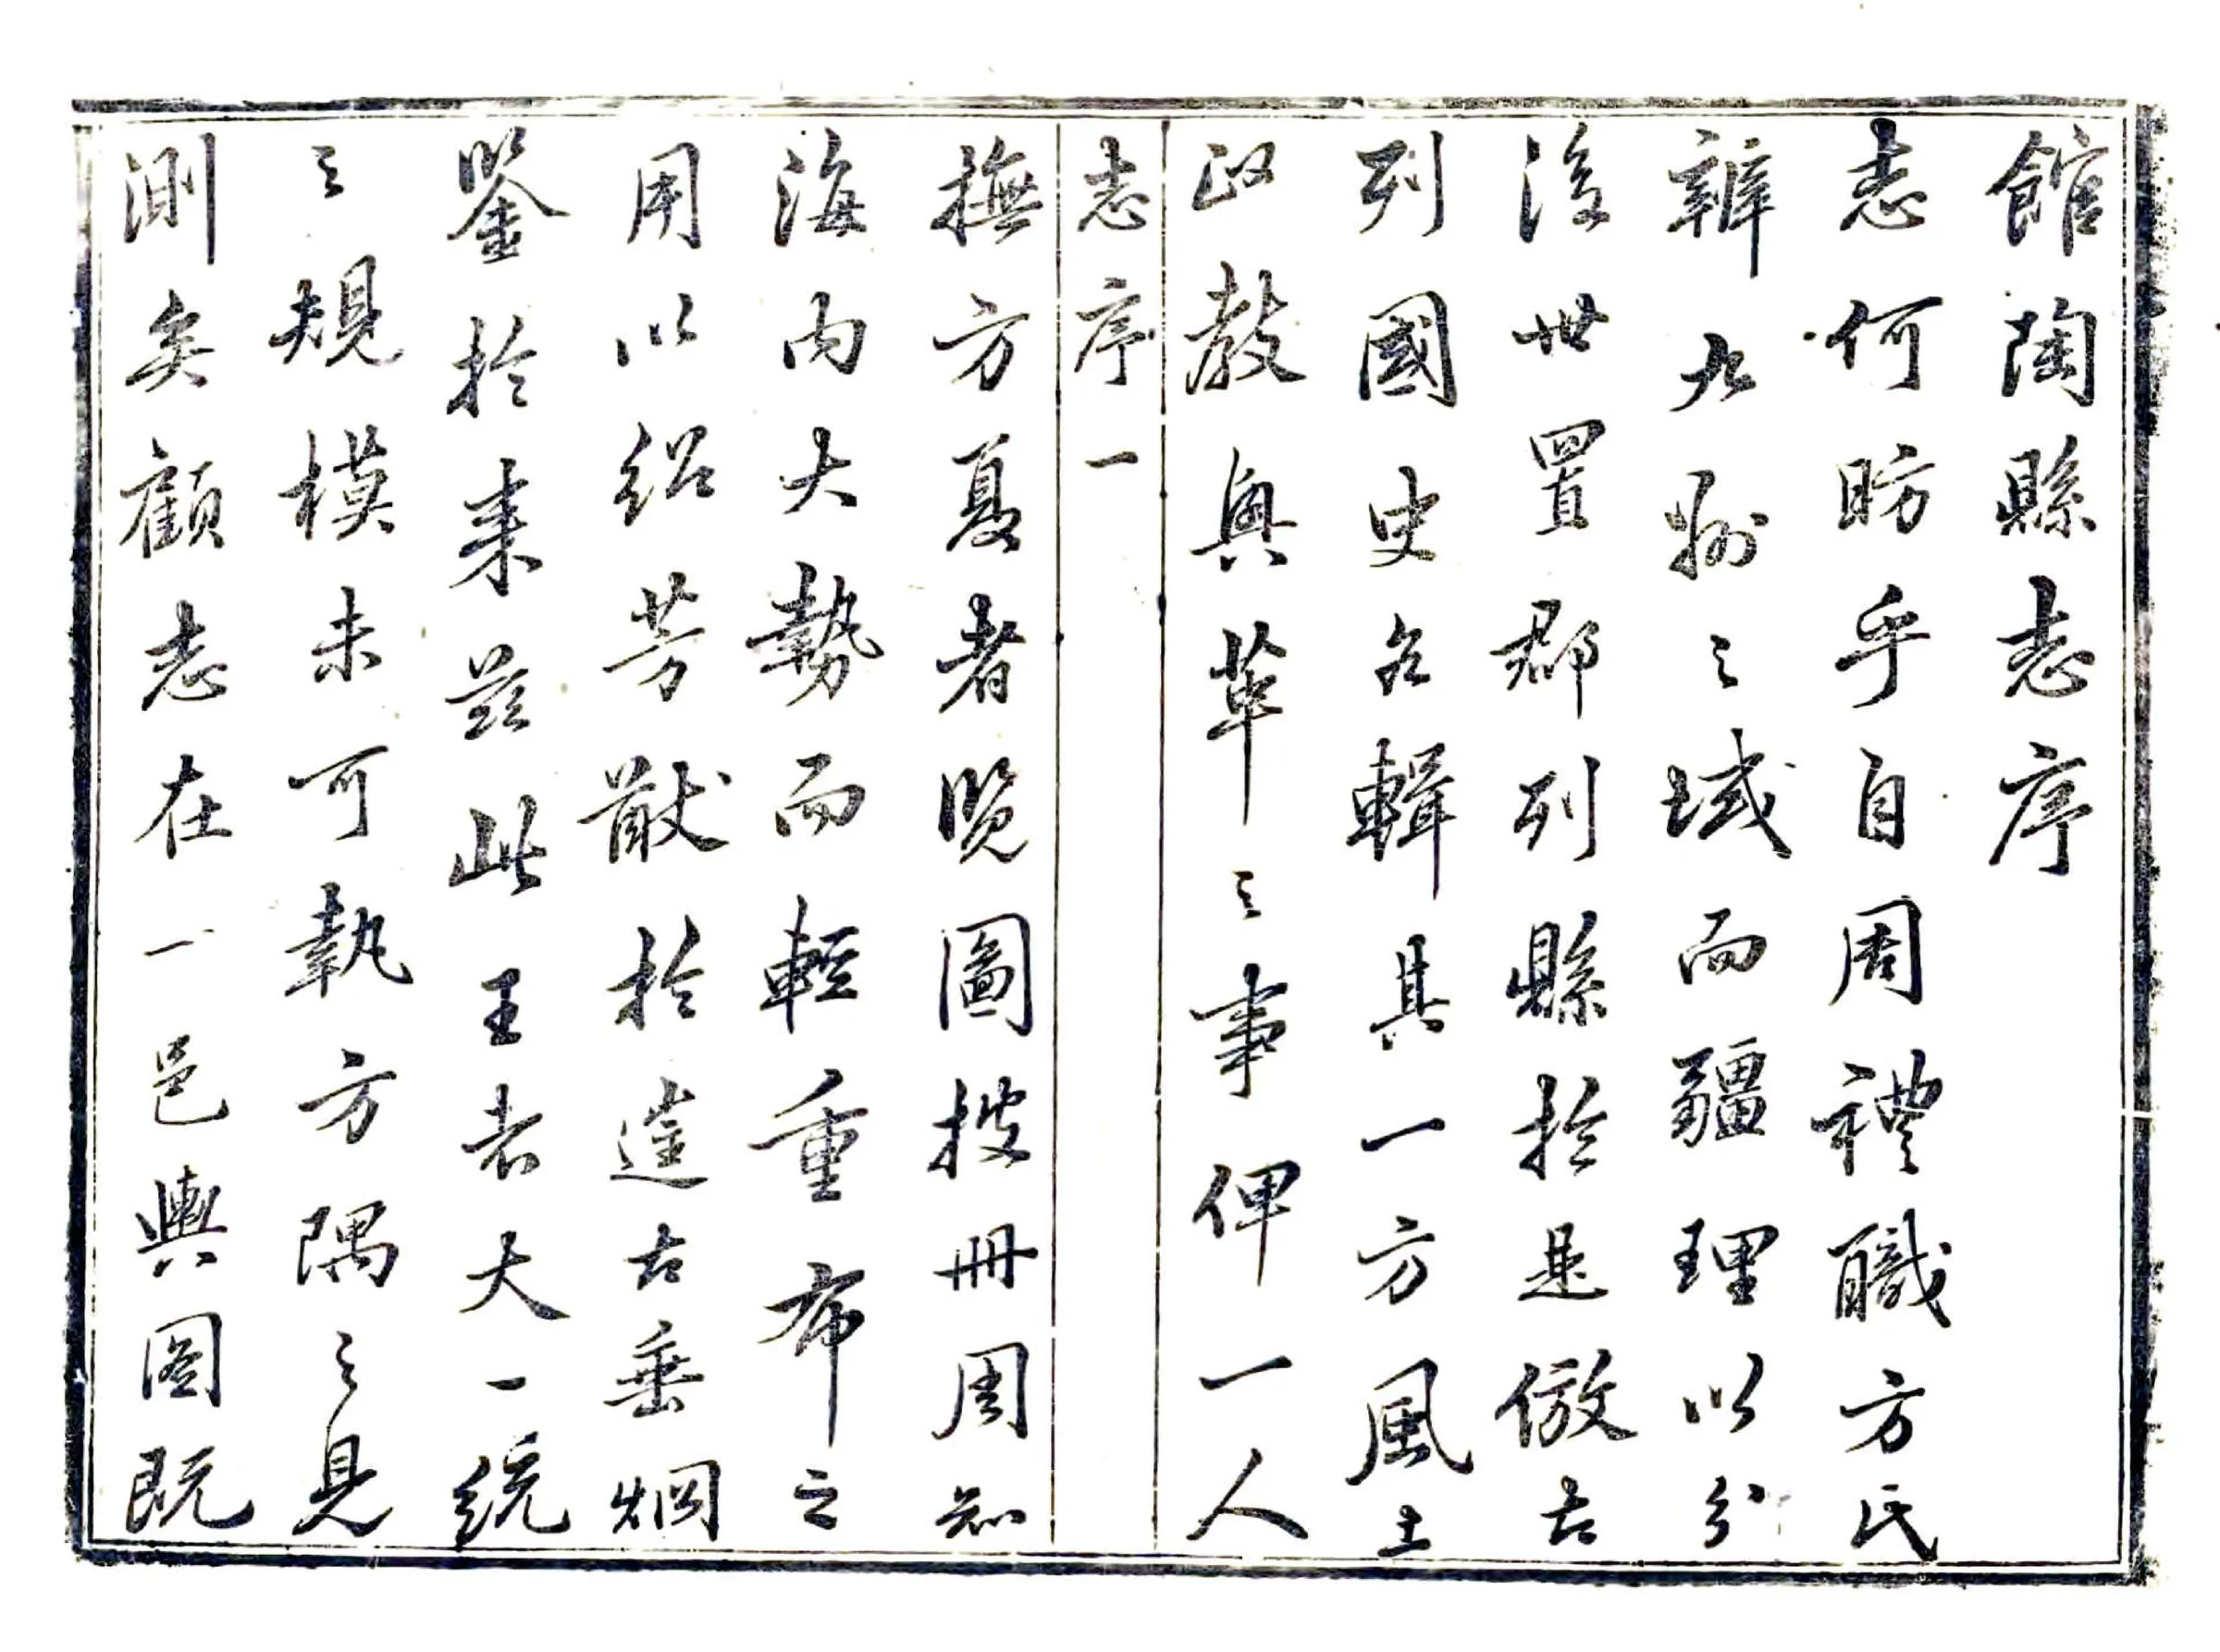 館陶縣志序
志何昉乎自周禮職方氏
辨九州之域而疆理以分
後世置郡列縣於是倣古
列國史名輯其一方風土
政教興革之事俾一人
志序一
撫方夏者覽圖披冊周知
海內大勢而輕重布之
用以紹芳猷於達古垂烱
鑒於来茲此王者大一統
之規模未可執方隅之見
測矣顧志在一邑輿圖既